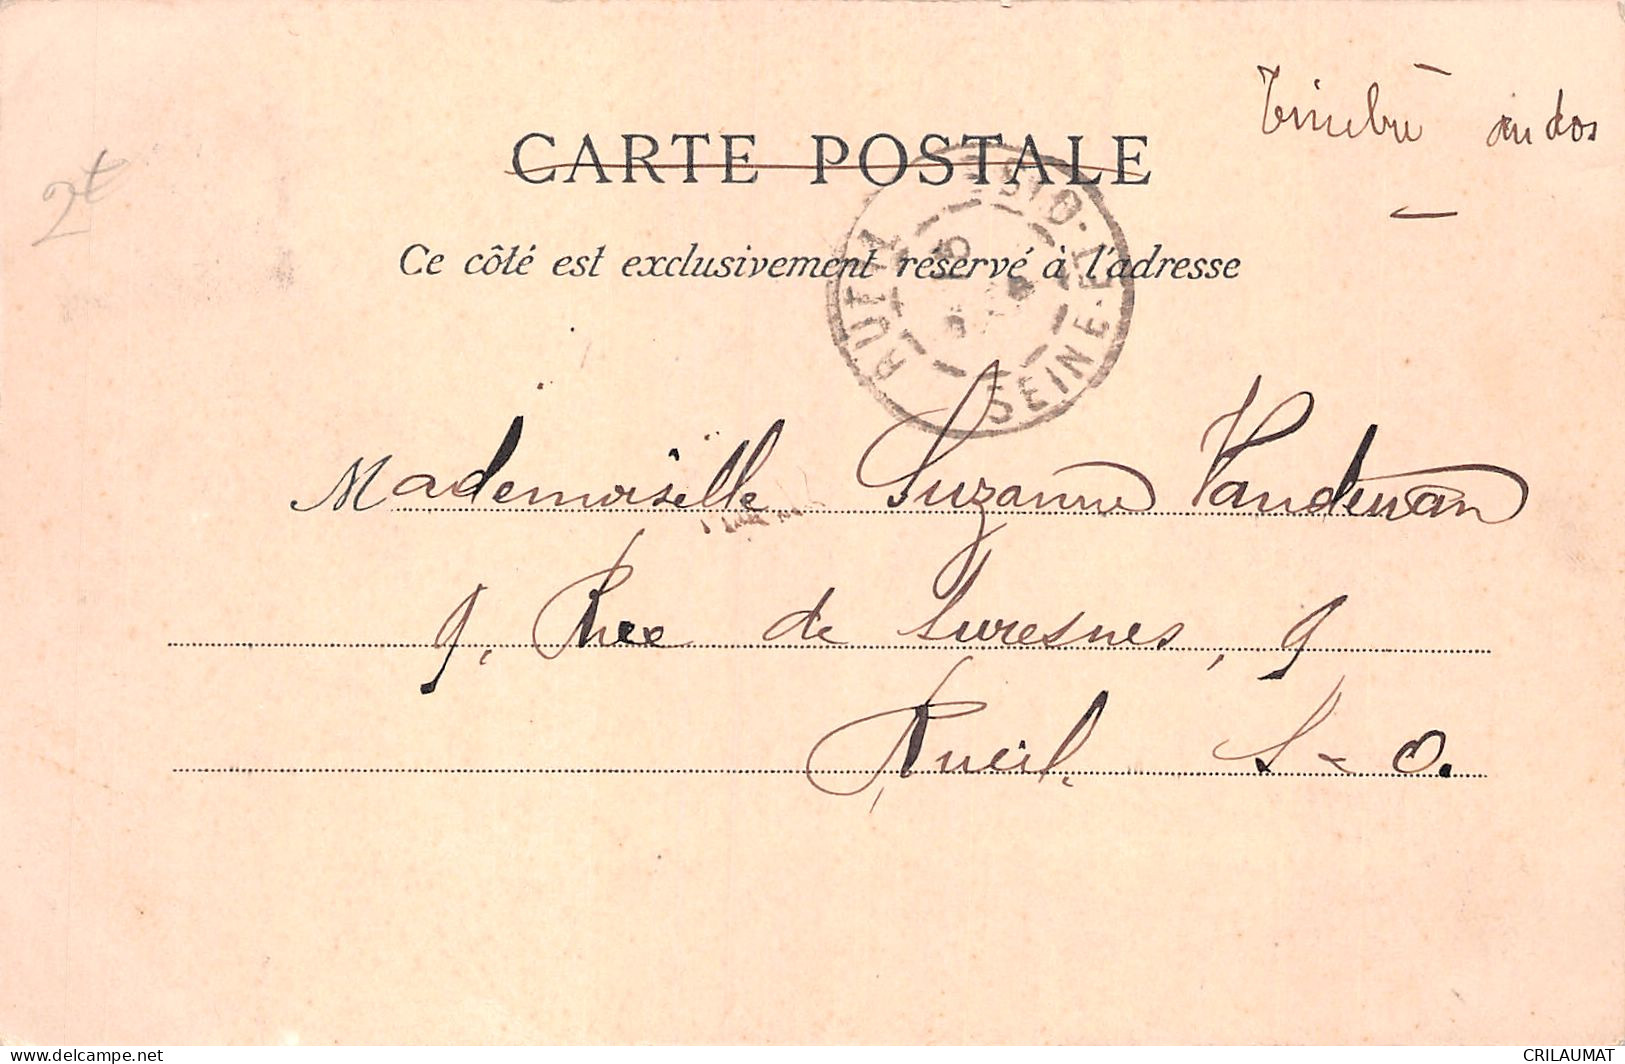 2t
Timbré au dos
CARTE POSTALE
Ce côté est exclusivement réservé à l'adresse
RUEIL
SEINE-ET-
Mademoiselle Suzanne
9, Rue de Suresnes, 9
Rueil. S-O.
delcampe.net
CRILAUMAT